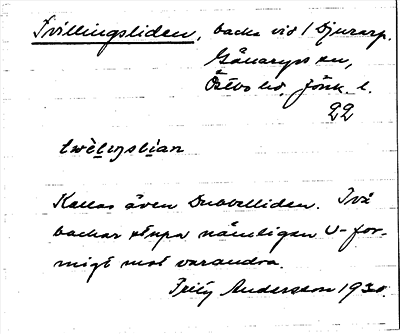 Tvillingsliden, backe vid 1 Djurarp.
Gånarps sn,
Östbo hd. Jönk. l.
22
twèlıŋslian
Kallas även Dubbelliden. Två
backar stupa nämligen U-for-
migt mot varandra.
Fritz Andersson 1930.